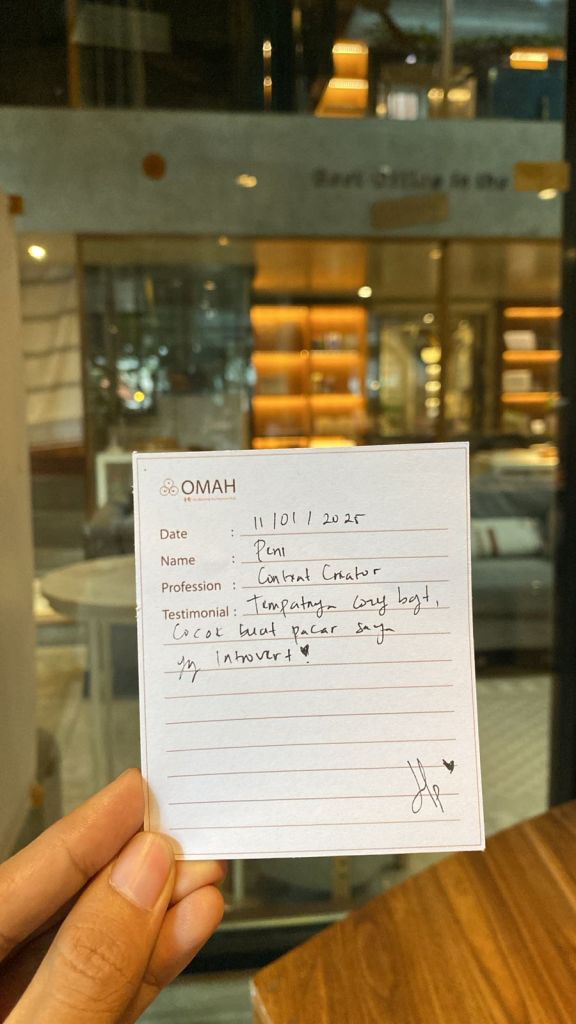 Best Office in the
OMAH
Date : 11/01/2025
Name : Peni
Profession : Content Creator
Testimonial : Tempatnya cozy bgt,
Cocok buat pacar saya
yg introvert